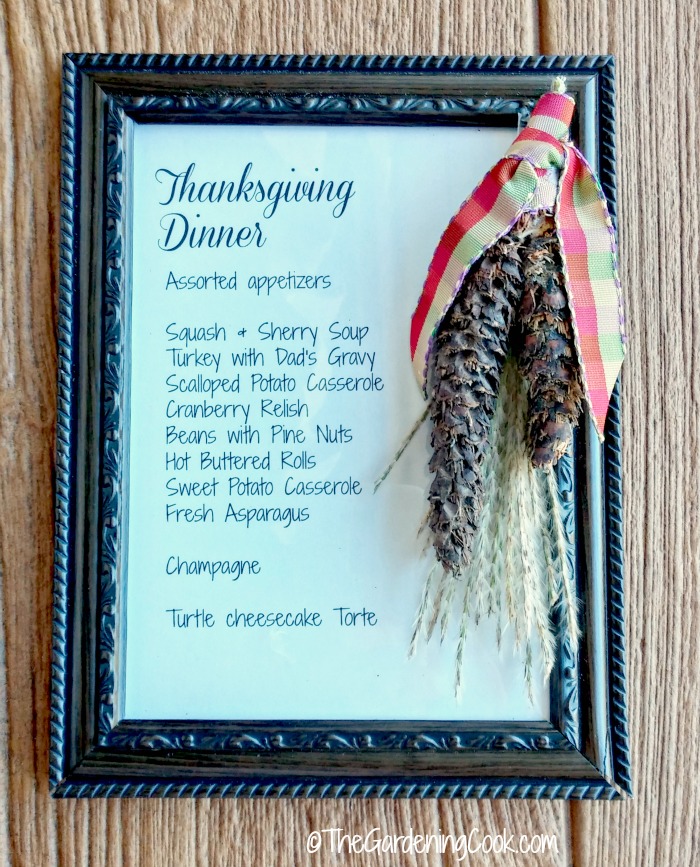 Thanksgiving
Dinner
Assorted appetizers
Squash & Sherry Soup
Turkey with Dad's Gravy
Scalloped Potato Casserole
Cranberry Relish
Beans with Pine Nuts
Hot Buttered Rolls
Sweet Potato Casserole
Fresh Asparagus
Champagne
Turtle cheesecake Torte
©TheGardeningCook.com